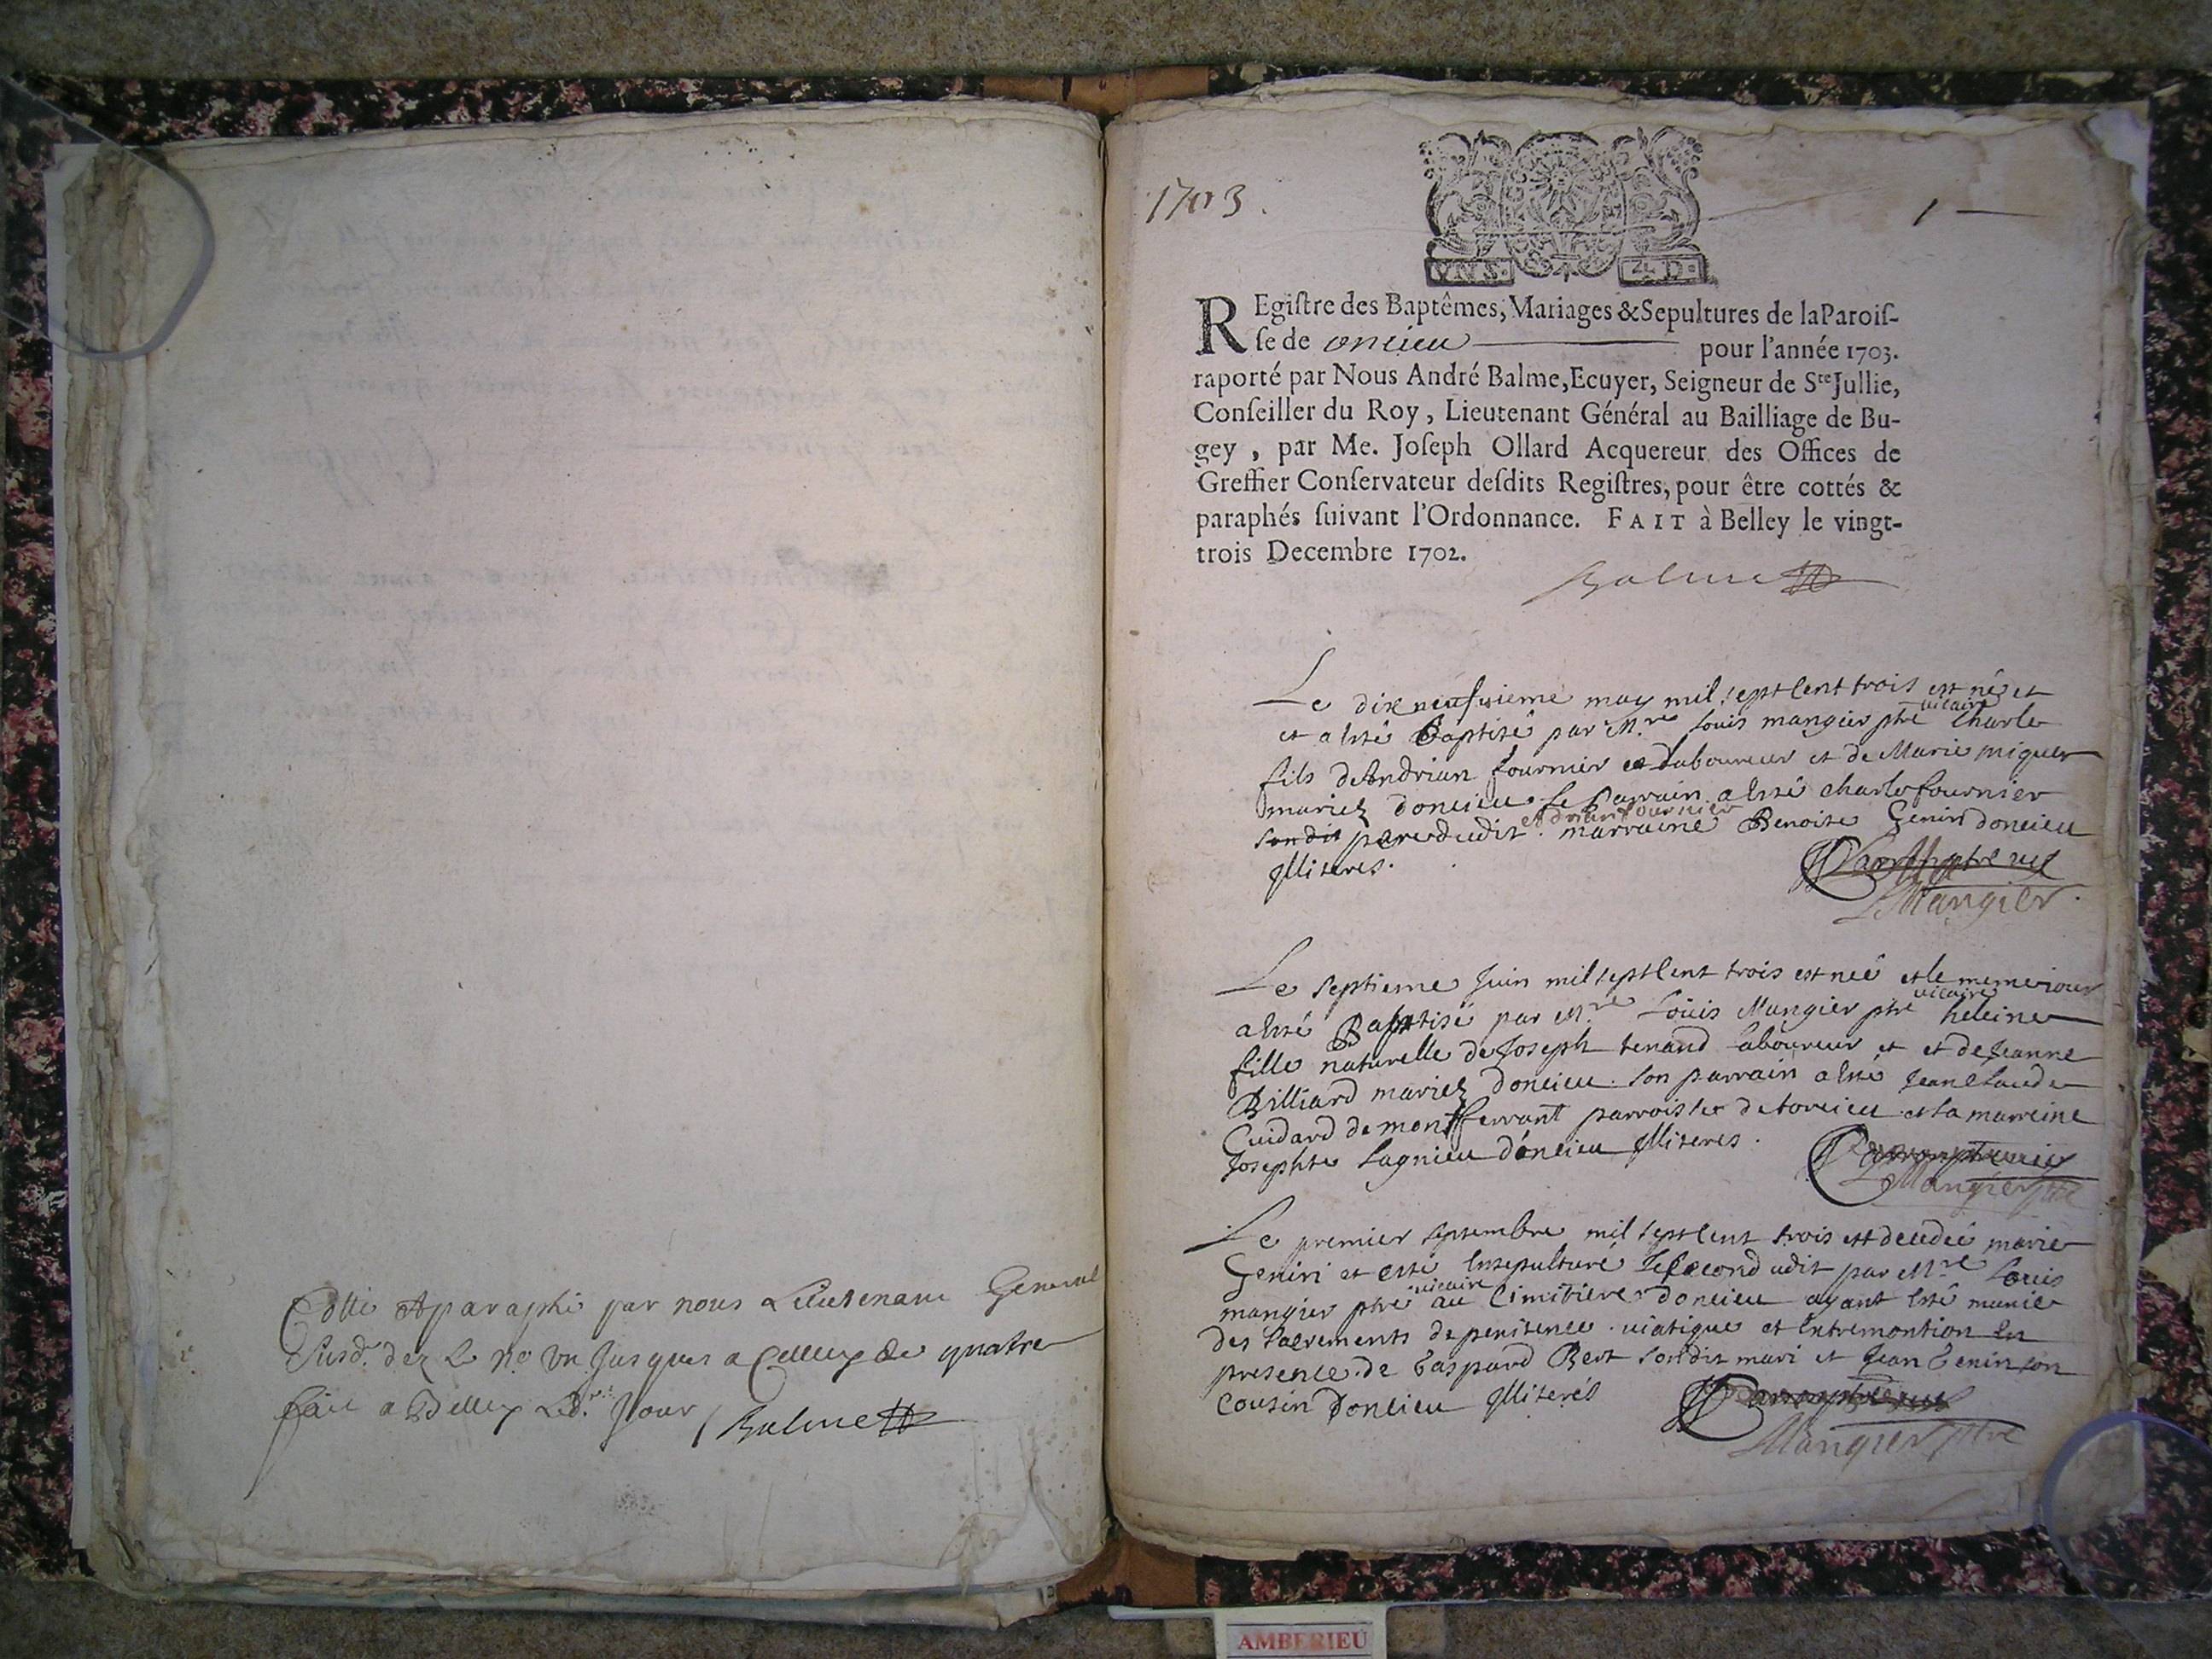 Cotté et paraphé par nous Lieutenant General
Susd. dez le no. un Jusques a Celluy de quatre
fait a Belley led. Jour Balme
1703.
1
VN S. 4. D.
REgiſtre des Baptêmes, Mariages & Sepultures de la Paroiſ-
ſe de onçieu pour l'année 1703.
raporté par Nous André Balme, Ecuyer, Seigneur de Ste Jullie,
Conſeiller du Roy, Lieutenant Général au Bailliage de Bu-
gey, par Me. Joſeph Ollard Acquereur des Offices de
Greffier Conſervateur deſdits Regiſtres, pour être cottés &
paraphés ſuivant l'Ordonnance. FAIT à Belley le vingt-
trois Decembre 1702.
Balme
Le dix neufvieme may mil sept Cent trois est né et
et a esté Baptisé par Mre Louis mangier ptre vicaire Charle
fils de Andrian fournier et laboureur et de Marie miquer
mariez doncieu. Le Parrain a esté charle fournier
son dit pere dudit adrian fournier marraine Benoite Genin doncieu
illiteres.
L Mangier.
Le septieme Juin mil sept Cent trois est neé et le meme jour
a esté Baptisé par Mre Loüis Mangier ptre vicaire heleine
fille naturelle de Joseph tenand laboureur et et de Jeanne
Billiard mariez doncieu. son parrain a esté Jean Claude
Guidard de montferrant parroisse de torcieu et la marreine
Josephte Lagnieu doncieu illiteres.
Mangier ptre
Le premier septembre mil sept Cent trois est decedeé marie
Genin et esté Ensepulturé le second udit par Mre Louis
mangier ptre vicaire au Cimitiere doncieu ayant esté munie
des Sacrements de penitence. viatique et Extremontion En
presence de Gaspard Bert son dit mari et Jean Genin son
Cousin doncieu illiterés
Mangier ptre
AMBERIEU